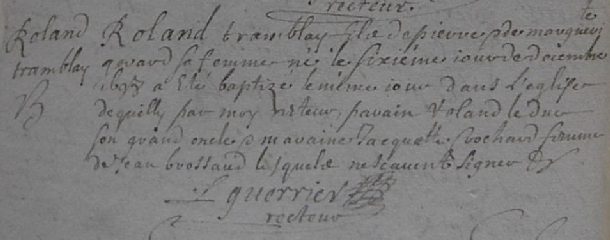 recteur
Roland Roland tramblay filz de pierre & de marguerite
tramblay govard sa femme né le sixiéme iour de decembre
B a été baptizé le même iour dans l'eglise
de quilly par moy recteur, parain Roland le duc
son grand oncle & maraine Jacquette brochard femme
de Jean brossaud lesquels ne scauent signer
guerrier
recteur